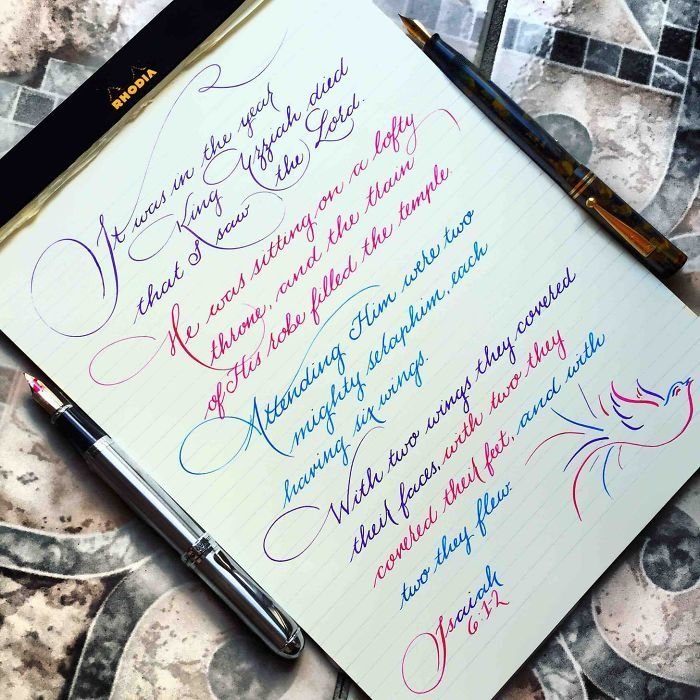 RHODIA
It was in the year
King Uzziah died
that I saw the Lord.
He was sitting on a lofty
throne, and the train
of His robe filled the temple.
Attending Him were two
mighty seraphim, each
having six wings.
With two wings they covered
their faces, with two they
covered their feet, and with
two they flew.
Isaiah
6:1-2